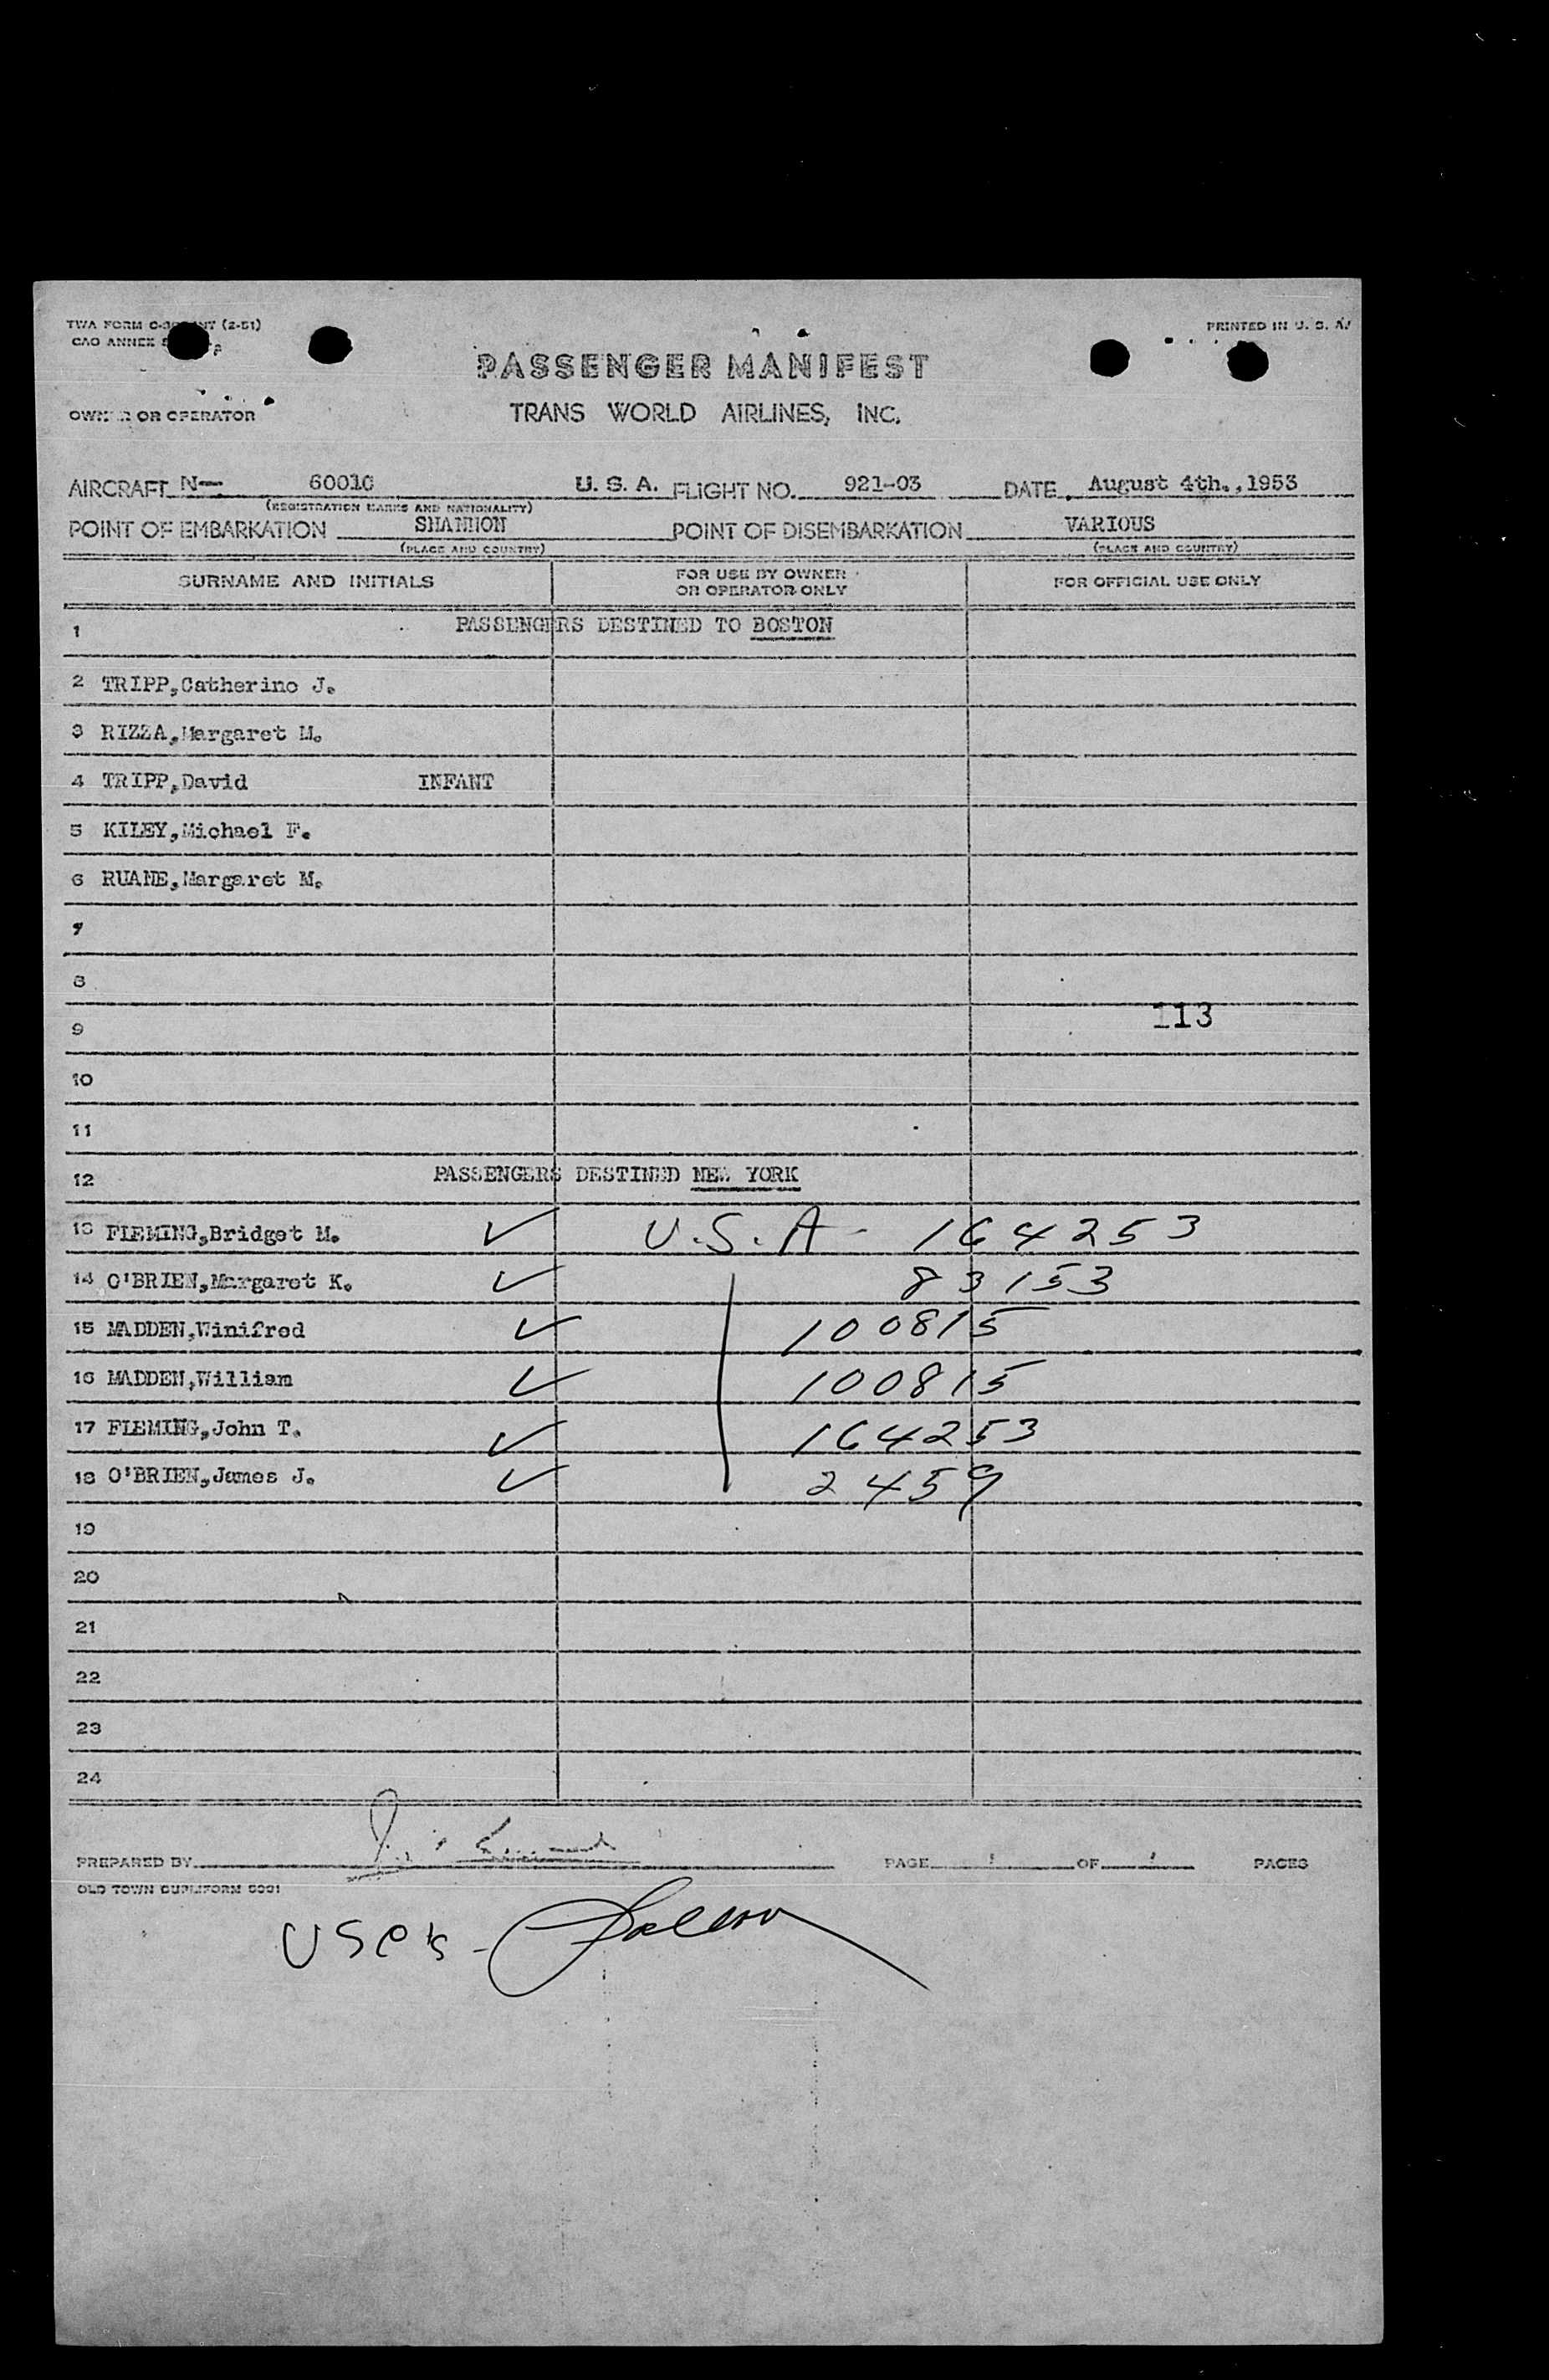 PRINTED IN U. S. A.
PASSENGER MANIFEST
OWNER OR OPERATOR TRANS WORLD AIRLINES, INC.
AIRCRAFT N— 60010 U. S. A. FLIGHT NO. 921-03 DATE August 4th.,1953
(REGISTRATION MARKS AND NATIONALITY)
POINT OF EMBARKATION SHANNON POINT OF DISEMBARKATION VARIOUS
(PLACE AND COUNTRY) (PLACE AND COUNTRY)
SURNAME AND INITIALS FOR USE BY OWNER OR OPERATOR ONLY FOR OFFICIAL USE ONLY
1 PASSENGERS DESTINED TO BOSTON
2 TRIPP,Catherine J.
3 RIZZA,Margaret M.
4 TRIPP,David INFANT
5 KILEY,Michael F.
6 RUANE,Margaret M.
7
8
9 113
10
11
12 PASSENGERS DESTINED NEW YORK
13 FLEMING,Bridget M. ✓ U.S.A - 164253
14 O'BRIEN,Margaret K. ✓ 83153
15 MADDEN,Winifred ✓ 100815
16 MADDEN,William ✓ 100815
17 FLEMING,John T. ✓ 164253
18 O'BRIEN,James J. ✓ 2459
19
20
21
22
23
24
PREPARED BY PAGE 1 OF 1 PAGES
OLD TOWN DUPLIFORM